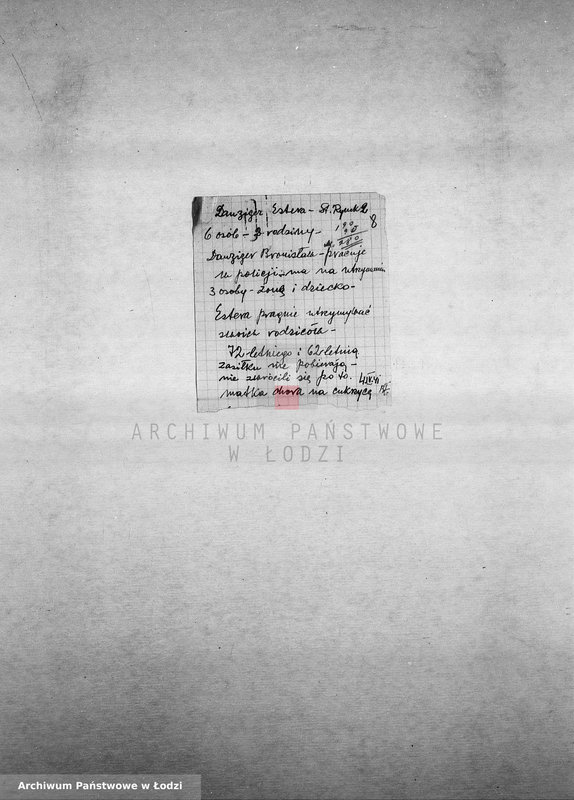 Danziger Estera - St. Rynek 2
8
6 osób - 3 rodziny -
Danziger Bronisław - pracuje
w policji - ma na utrzymaniu
3 osoby - żonę i dziecko -
Estera pragnie utrzymywać
swoich rodziców -
72-letniego i 62-letnią
zasiłku nie pobierają -
nie zwrócili się po to.
matka chora na cukrzycę
ARCHIWUM PAŃSTWOWE
W ŁODZI
Archiwum Państwowe w Łodzi